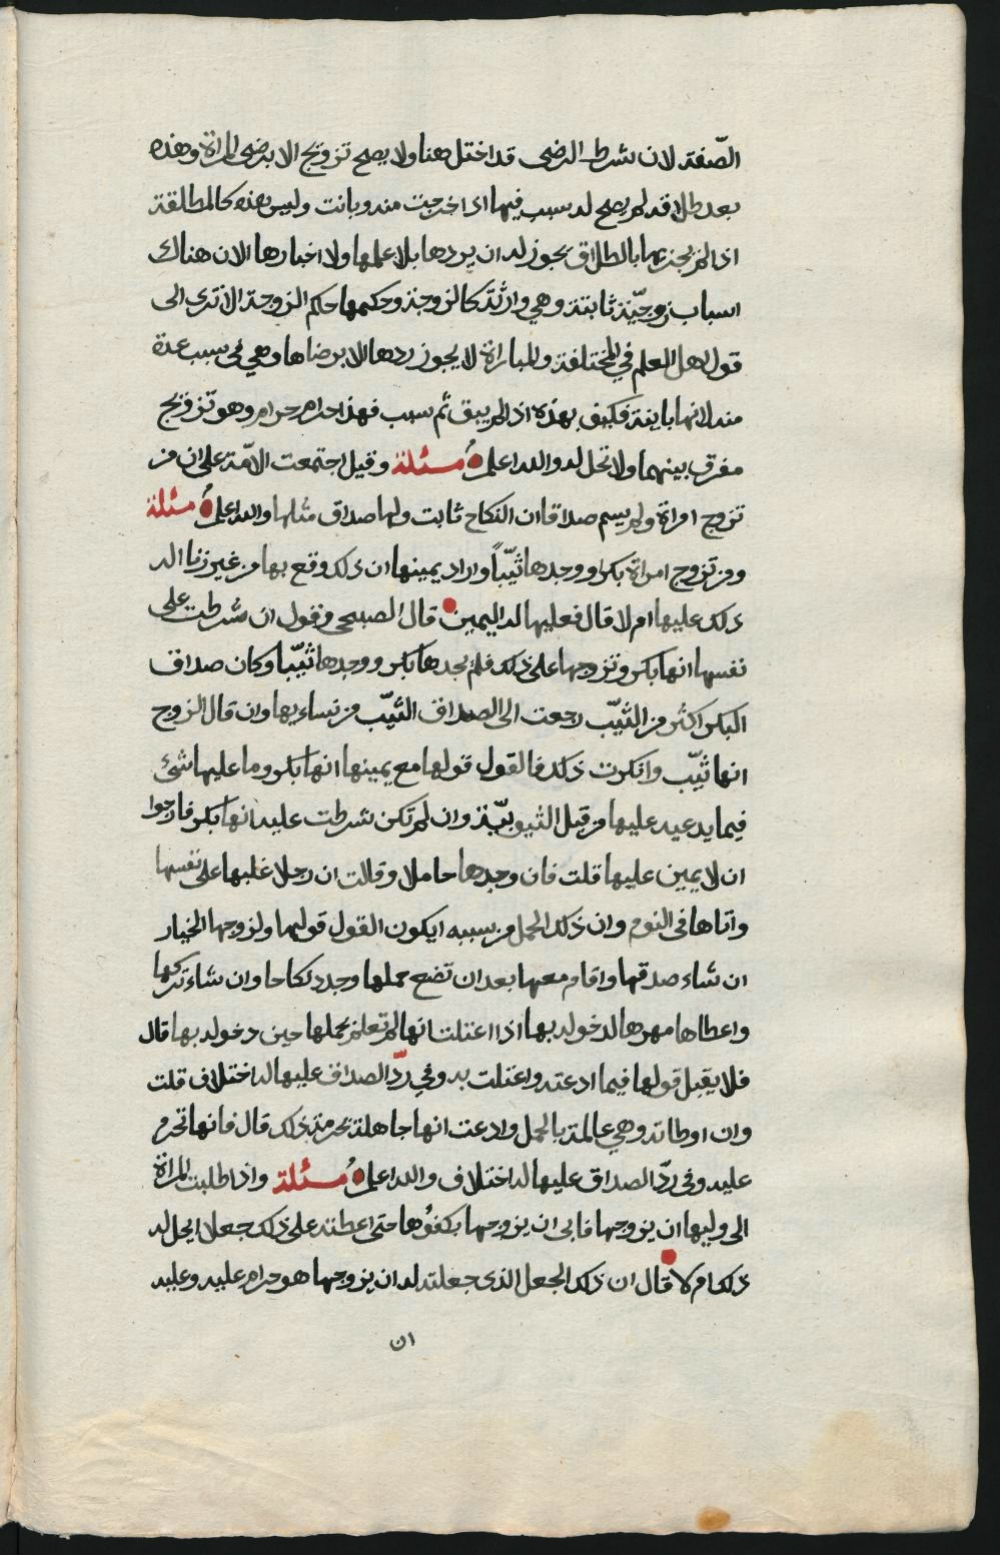 الصّفة لان شرط الرضى قد اختل هنا ولا يصح تزويج الا برضى المراة وهذه
بعد طلاقه لم يصح له سبب فيها اذا خرجت منه وبانت وليس هذه كالمطلقة
اذا لم يحرمها بالطلاق يجوز له ان يردها بلا علمها ولا اخبارها الان هناك
اسباب زوجيّة ثابتة وهي وارثة كالزوجة وحكمها حكم الزوجة الا ترى الى
قول اهل العلم في المختلفة والمباراة لا يجوز ردها الا برضاها وهي في سبب عدة
منه لانها باينة فكيف بهذه اذ لم يبق ثم سبب فهذا حرام حرام وهو تزويج
مفرق بينهما ولا تحل له والله اعلم مسئلة وقيل اجتمعت الامّة على ان من
تزوج امراة ولم يسم صداقا ان النكاح ثابت ولها صداق مثلها والله اعلم مسئلة
ومن تزوج امراة بكرا ووجدها ثيّباً واراد يمينها ان ذلك وقع بها من غير زنا اله
ذلك عليها ام لا قال فعليها له اليمين قال الصبحي ونقول ان شرطت على
نفسها انها بكر وتزوجها على ذلك فلم يجدها بكر ووجدها ثيّبا وكان صداق
البكر اكثر من الثيّب رجعت الى الصداق الثيّب من نساء بها وان قال الزوج
انها ثيّب وانكرت ذلك فالقول قولها مع يمينها انها بكر وما عليها شئ
فيما يدعيه عليها من قبل الثيوبيّة وان لم تكن شرطت عليه انها بكر فارجوا
ان لا يمين عليها قلت فان وجدها حاملا وقالت ان رجلا غلبها على نفسها
واتاها في النوم وان ذلك الحمل من سببه ايكون القول قولها ولزوجها الخيار
ان شاء صدقها واقام معها بعد ان تضع حملها وجدد نكاحا وان شاء تركها
واعطاها مهرها لدخوله بها اذا اعتلت انها لم تعلم بحملها حين دخوله بها قال
فلا يقبل قولها فيما ادعته واعتلت به وفي ردّ الصداق عليها له اختلاف قلت
وان اوطاته وهي عالمة بالحمل وادعت انها جاهلة بحرمة ذلك قال فانها تحرم
عليه وفي ردّ الصداق عليها له اختلاف والله اعلم مسئلة واذا طلبت المراة
الى وليها ان يزوجها فابى ان يزوجها بكفؤها حتى اعطته على ذلك جعلا ايحل له
ذلك ام لا قال ان ذلك الجعل الذى جعلته له ان يزوجها هو حرام عليه وعليه
ان